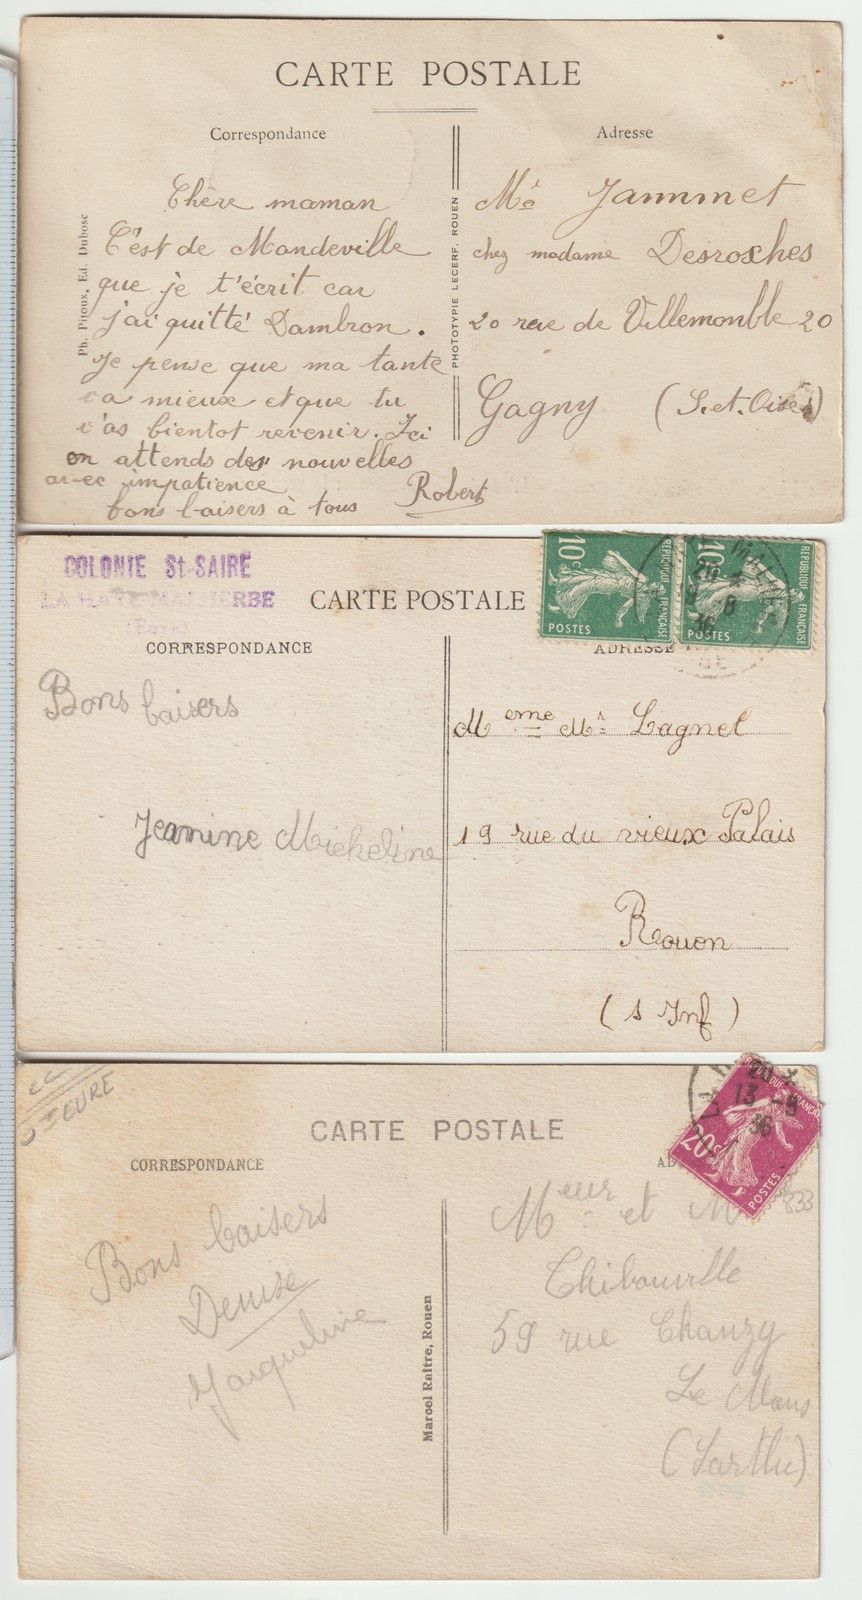 CARTE POSTALE
Correspondance
Adresse
Ph. Pitoux, Ed. Dubosc
PHOTOTYPIE LECERF, ROUEN
Chère maman
C'est de Mandeville
que je t'écrit car
j'ai quitté Dambron.
Je pense que ma tante
va mieux et que tu
vas bientot revenir. Ici
on attends des nouvelles
avec impatience
bons baisers à tous
Robert
Jammet
chez madame Desroches
20 rue de Villemomble 20
Gagny (S.et.Oise)
COLONIE St-SAIRE
LA HAYE-MALHERBE
(Eure)
CARTE POSTALE
CORRESPONDANCE
ADRESSE
10c
REPUBLIQUE FRANÇAISE
POSTES
10c
REPUBLIQUE FRANÇAISE
POSTES
20
9 8
36
Bons baisers
Jeanine Micheline
Meme Mr Lagnel
19 rue du vieux Palais
Rouen
(s Inf)
EURE
CARTE POSTALE
CORRESPONDANCE
AD
20c
POSTES
20
13 -9
36
833
Marcel Raître, Rouen
Bons baisers
Denise
Jacqueline
Meur et M
Thibouville
59 rue Chanzy
Le Mans
(Sarthe)